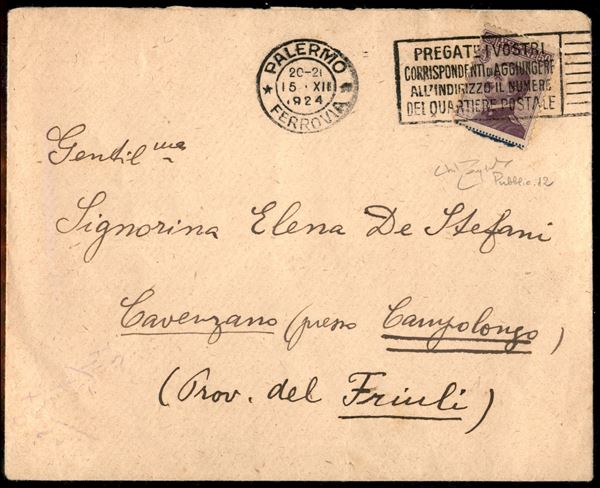 PALERMO
20-21
15 · XII
1924
FERROVIA
PREGATE I VOSTRI
CORRISPONDENTI DI AGGIUNGERE
ALL'INDIRIZZO IL NUMERO
DEL QUARTIERE POSTALE
Gentil ma
Pubblic. 12
Signorina Elena De Stefani
Cavenzano (presso Campolongo)
(Prov. del Friuli)